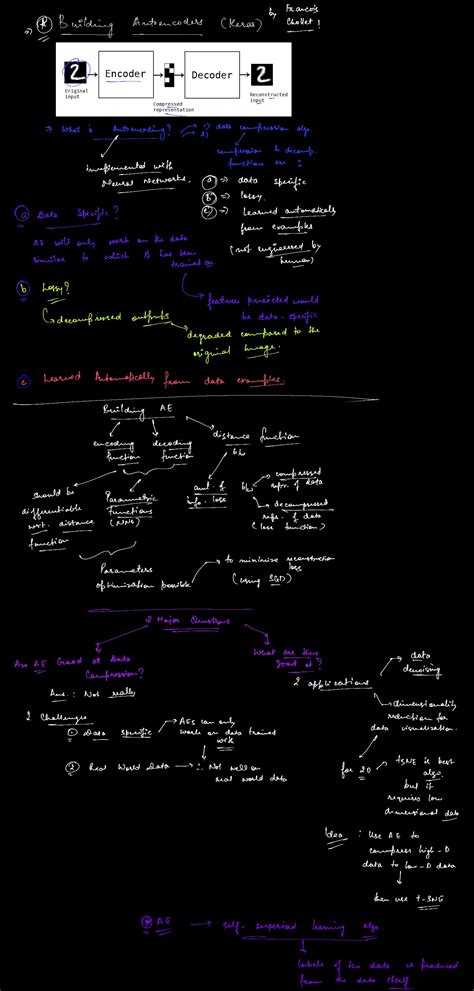 ⇒ * Building Autoencoders (Keras) by Francois Chollet!
2 → Encoder → Decoder → 2
Original input
Compressed representation
Reconstructed input
⇒ What is Autoencoding?
1) data compression algo.
2)
compression & decomp. functions are:
implemented with Neural Networks.
a ⇒ data specific
b ⇒ lossy
c ⇒ learned automatically from examples
(not engineered by human)
a Data Specific?
AE will only work on the data
similar to which it has been
trained on
features predicted would
be data-specific
b Lossy?
decompressed outputs
degraded compared to the
original Image.
c Learned Automatically from data examples.
Building AE
encoding function
decoding function
distance function
b/w
should be
differentiable
wrt. distance
function
Parametric
functions
(NNs)
amt. of
info. loss
b/w
compressed
repr. of data
decompressed
repr. of data
(loss function)
Parameters
optimization possible
to minimize reconstruction
loss
(using SGD)
2 Major Questions
Are AE Good at Data
Compression?
Ans.: Not really
What are they
good at?
2 applications
data
denoising
dimensionality
reduction for
data visualization.
2 Challenges
1 Data Specific → AEs can only
work on data trained
with
2 Real World Data → ∴ Not well on
real world data
for 2D → tSNE is best
algo.
but it
requires low
dimensional data
Idea : Use AE to
compress high-D
data to low-D data
then use t-SNE
* AE → self-supervised learning algo
labels of the data is produced
from the data itself